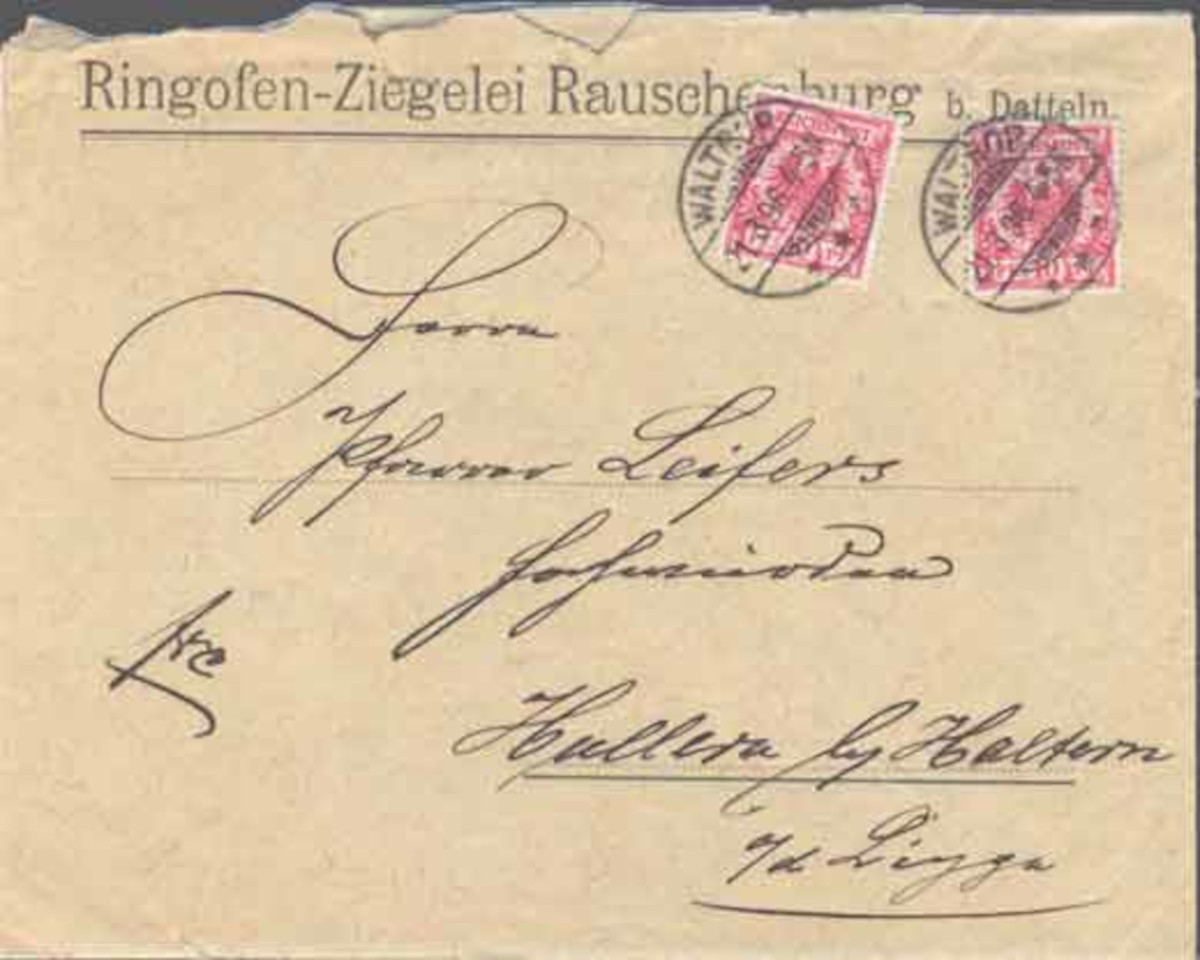 Ringofen-Ziegelei Rauschenburg b. Datteln.
WALTROP
7.3.96
WALTROP
10
Herrn
Pfarrer Leifers
Hochwürden
frc
Hullern by Haltern
a/d Lippe